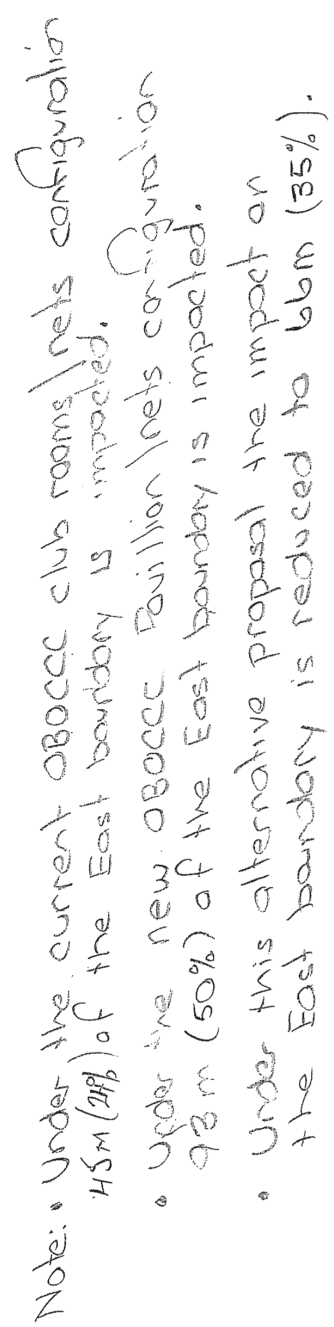 Note: • Under the current OBOCCC club rooms/nets configuration
45m (24%) of the East boundary is impacted.
• Under the new OBOCCC Pavillion/nets configuration
93m (50%) of the East boundary is impacted.
• Under this alternative proposal the impact on
the East boundary is reduced to 66m (35%).